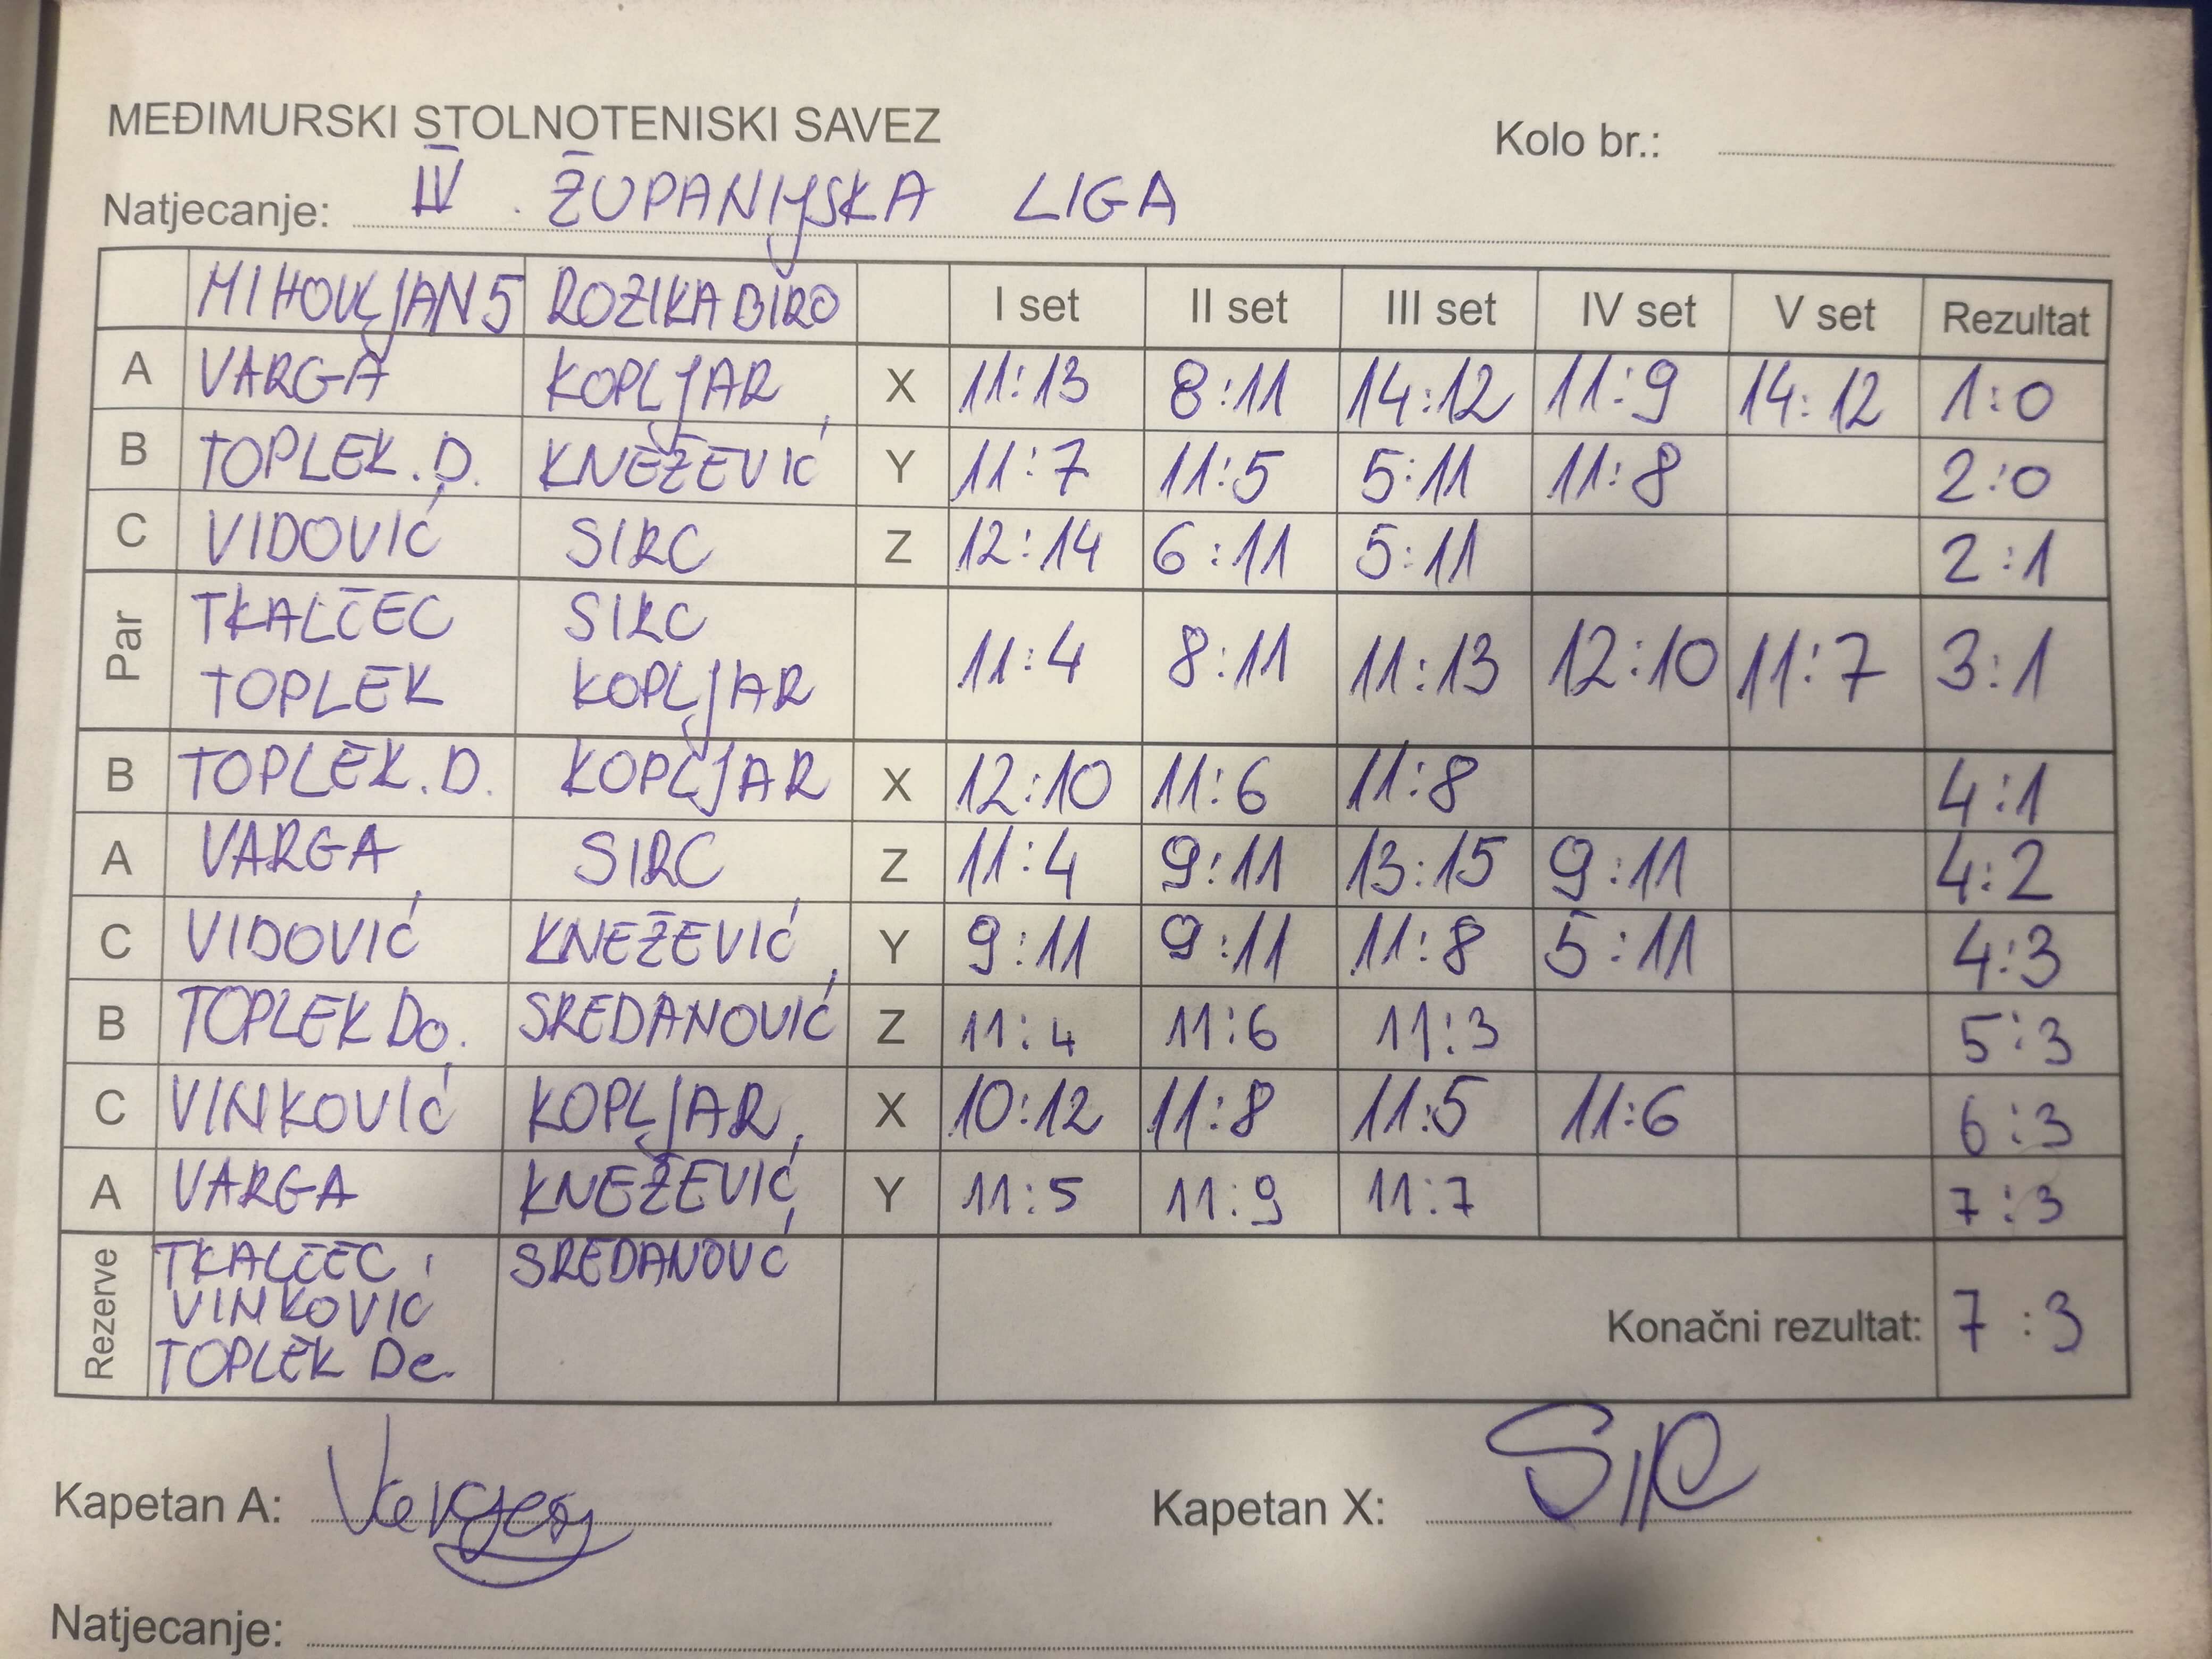 MEĐIMURSKI STOLNOTENISKI SAVEZ
Kolo br.:
Natjecanje: IV. ŽUPANIJSKA LIGA
MIHOVLJAN 5 ROZIKA BIRO I set II set III set IV set V set Rezultat
A VARGA KOPLJAR X 11:13 8:11 14:12 11:9 14:12 1:0
B TOPLEK.D. KNEŽEVIĆ Y 11:7 11:5 5:11 11:8 2:0
C VIDOVIĆ SIRC Z 12:14 6:11 5:11 2:1
Par TKALČEC SIRC
TOPLEK KOPLJAR 11:4 8:11 11:13 12:10 11:7 3:1
B TOPLEK.D. KOPLJAR X 12:10 11:6 11:8 4:1
A VARGA SIRC Z 11:4 9:11 13:15 9:11 4:2
C VIDOVIĆ KNEŽEVIĆ Y 9:11 9:11 11:8 5:11 4:3
B TOPLEK Do. SREDANOVIĆ Z 11:4 11:6 11:3 5:3
C VINKOVIĆ KOPLJAR X 10:12 11:8 11:5 11:6 6:3
A VARGA KNEŽEVIĆ Y 11:5 11:9 11:7 7:3
Rezerve TKALČEC SREDANOVĆ
VINKOVIĆ
TOPLEK De.
Konačni rezultat: 7:3
Kapetan A: Varga
Kapetan X: SIR
Natjecanje: